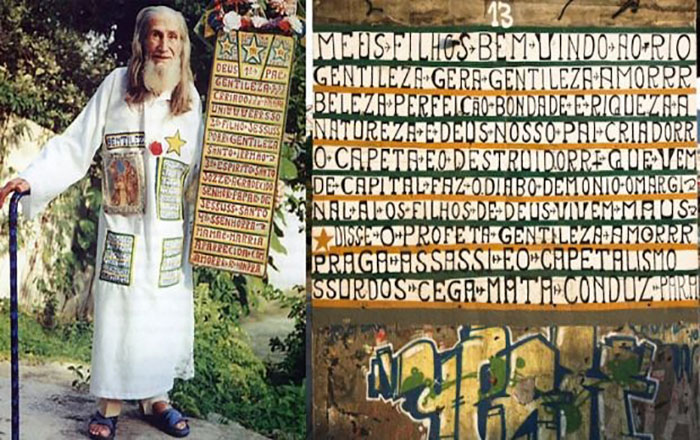 DEUS PAI
GENTILEZA
CRIADORR
UNIVVVERESSO
FILHO JESSUS
PORR GENTILEZA
SANTO
ESPIRITO SANTO
AGRADECIDO
PAPAE DE
JESSUSS SANTO
SSENHORRA
MAMAE MARRIA
APARECIDA COM
AMORRR
GENTILEZA
13
MEUS FILHOS BEM VINDO AO RIO
GENTILEZA GERA GENTILEZA AMORRR
BELEZA PERFEIÇÃO BONDADE E RIQUEZA A
NATUREZA E DEUS NOSSO PAI CRIADORR
O CAPETA E O DESTRUIDORR E QUE VEM
DE CAPITAL FAZ O DIABO DEMONIO MARGI
NAL AI OS FILHOS DE DEUS VIVEM MAUS
DISSE O PROFETA GENTILEZA AMORRR
PRAGA ASSASSI E O CAPETALISMO
SSURDOS CEGA MATA CONDUZ PARA